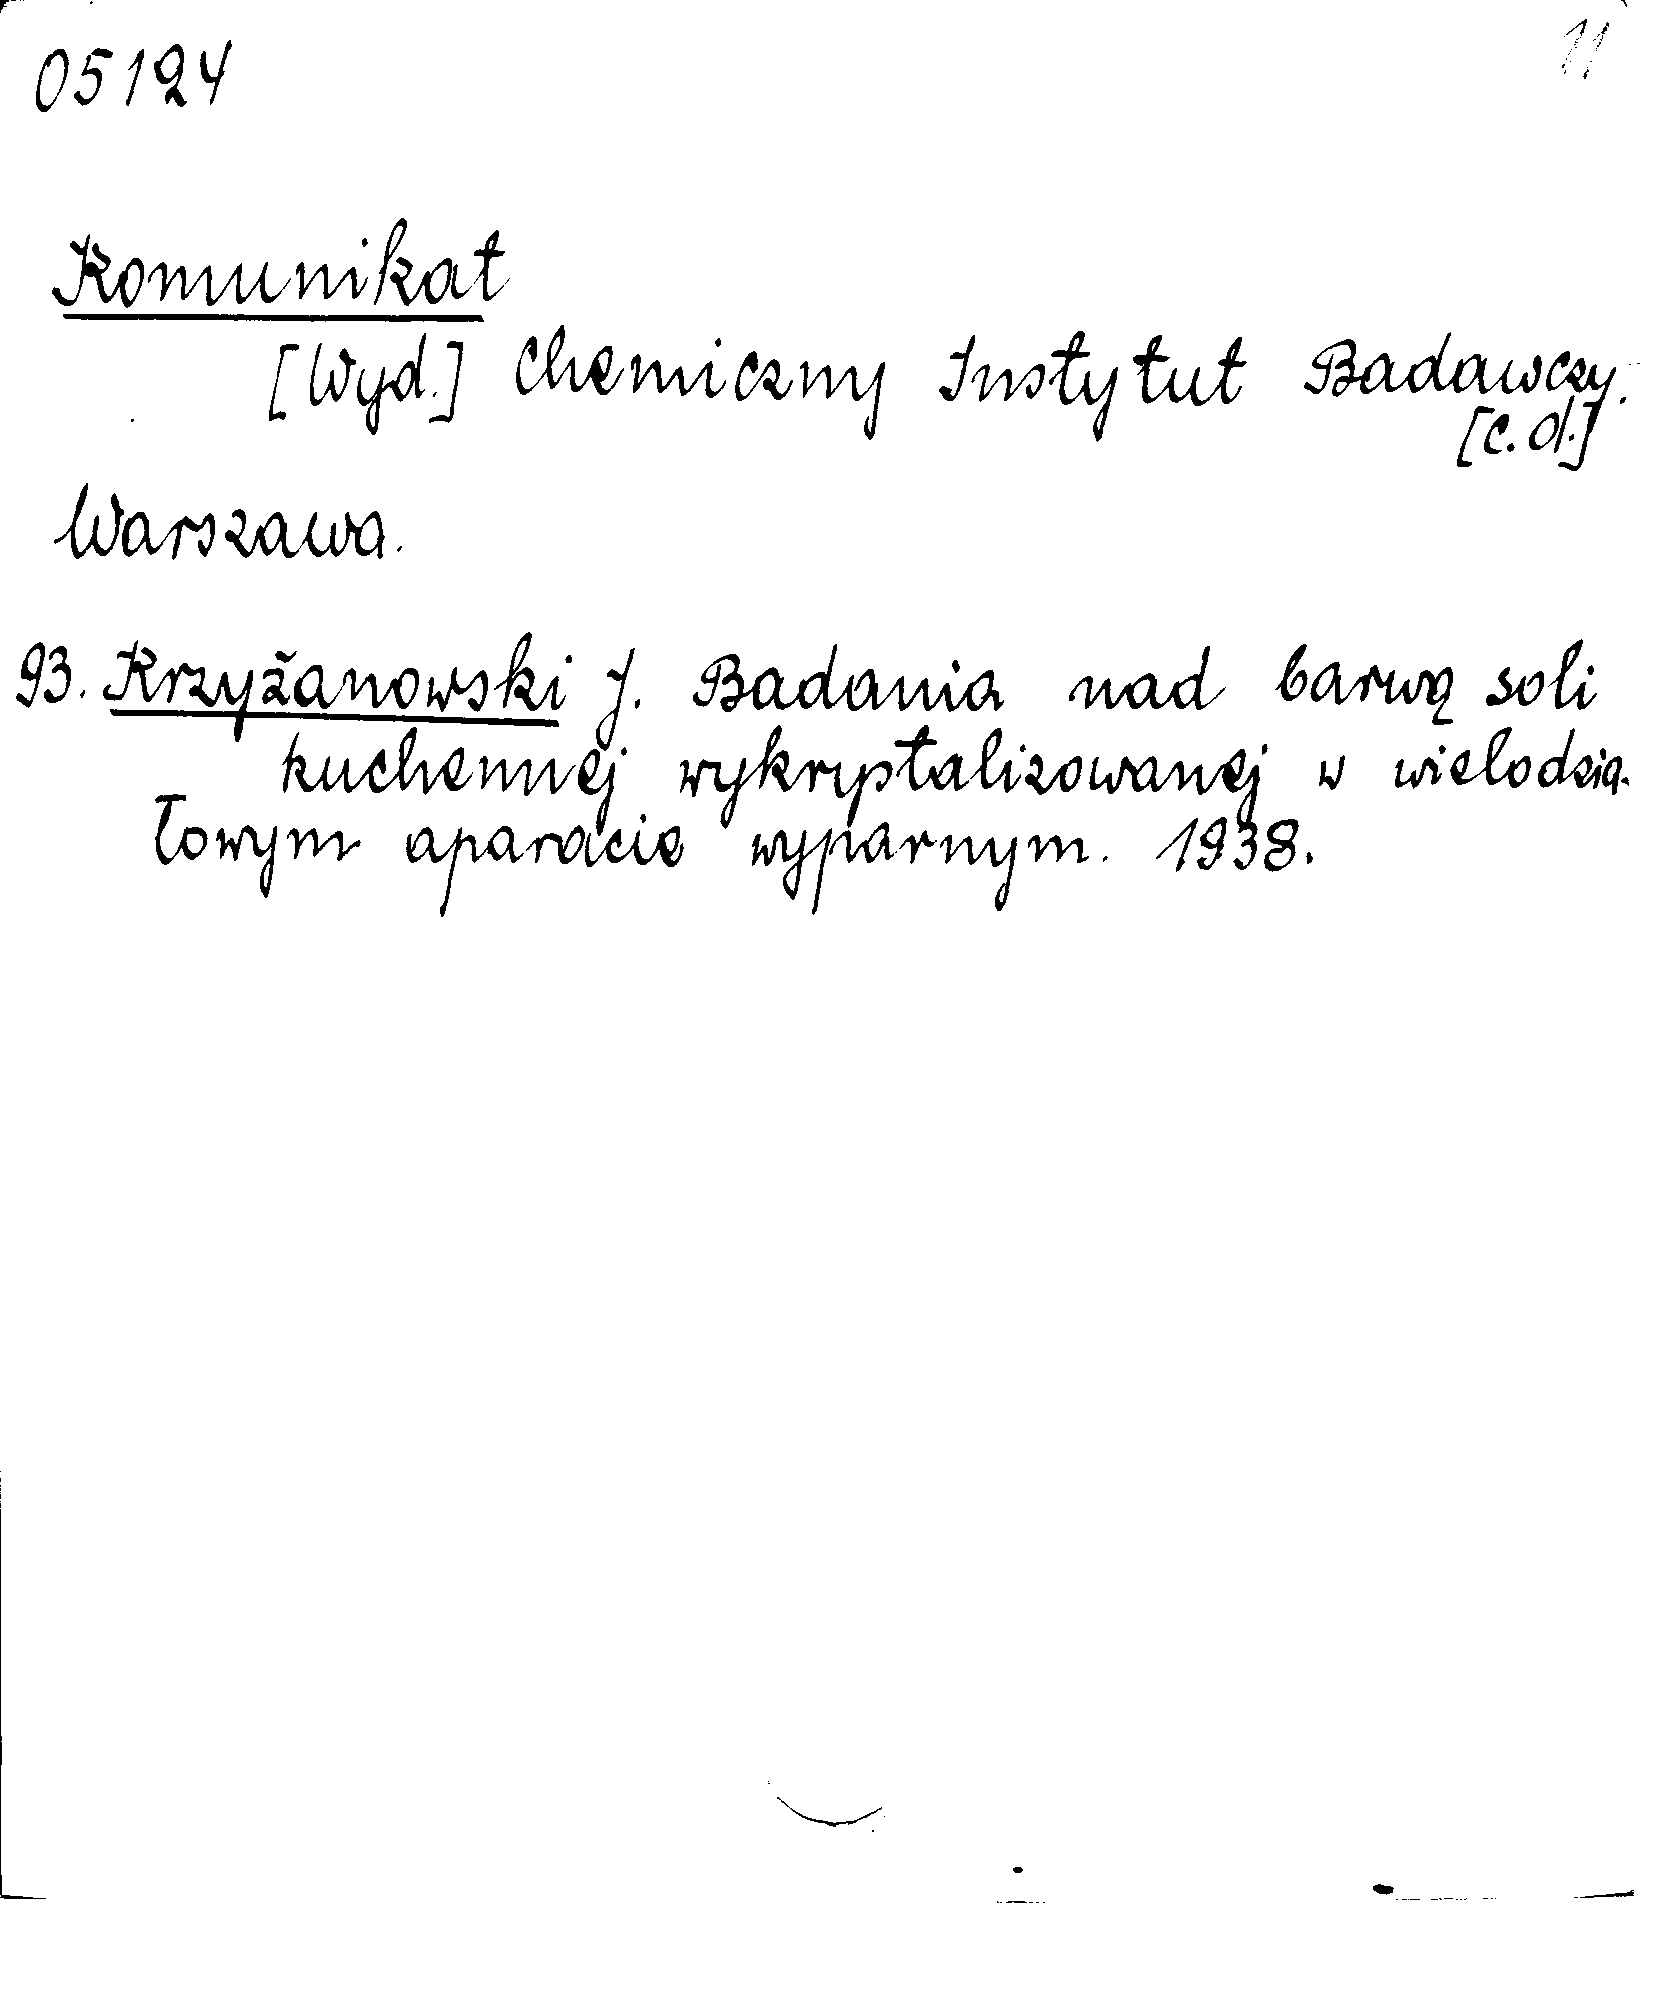 05124
11
Komunikat
[Wyd.] Chemiczny Instytut Badawczy.
[c.d.]
Warszawa.
93. Krzyżanowski J. Badania nad barwą soli
kuchennej wykrystalizowanej w wielodzia-
łowym aparacie wyparnym. 1938.